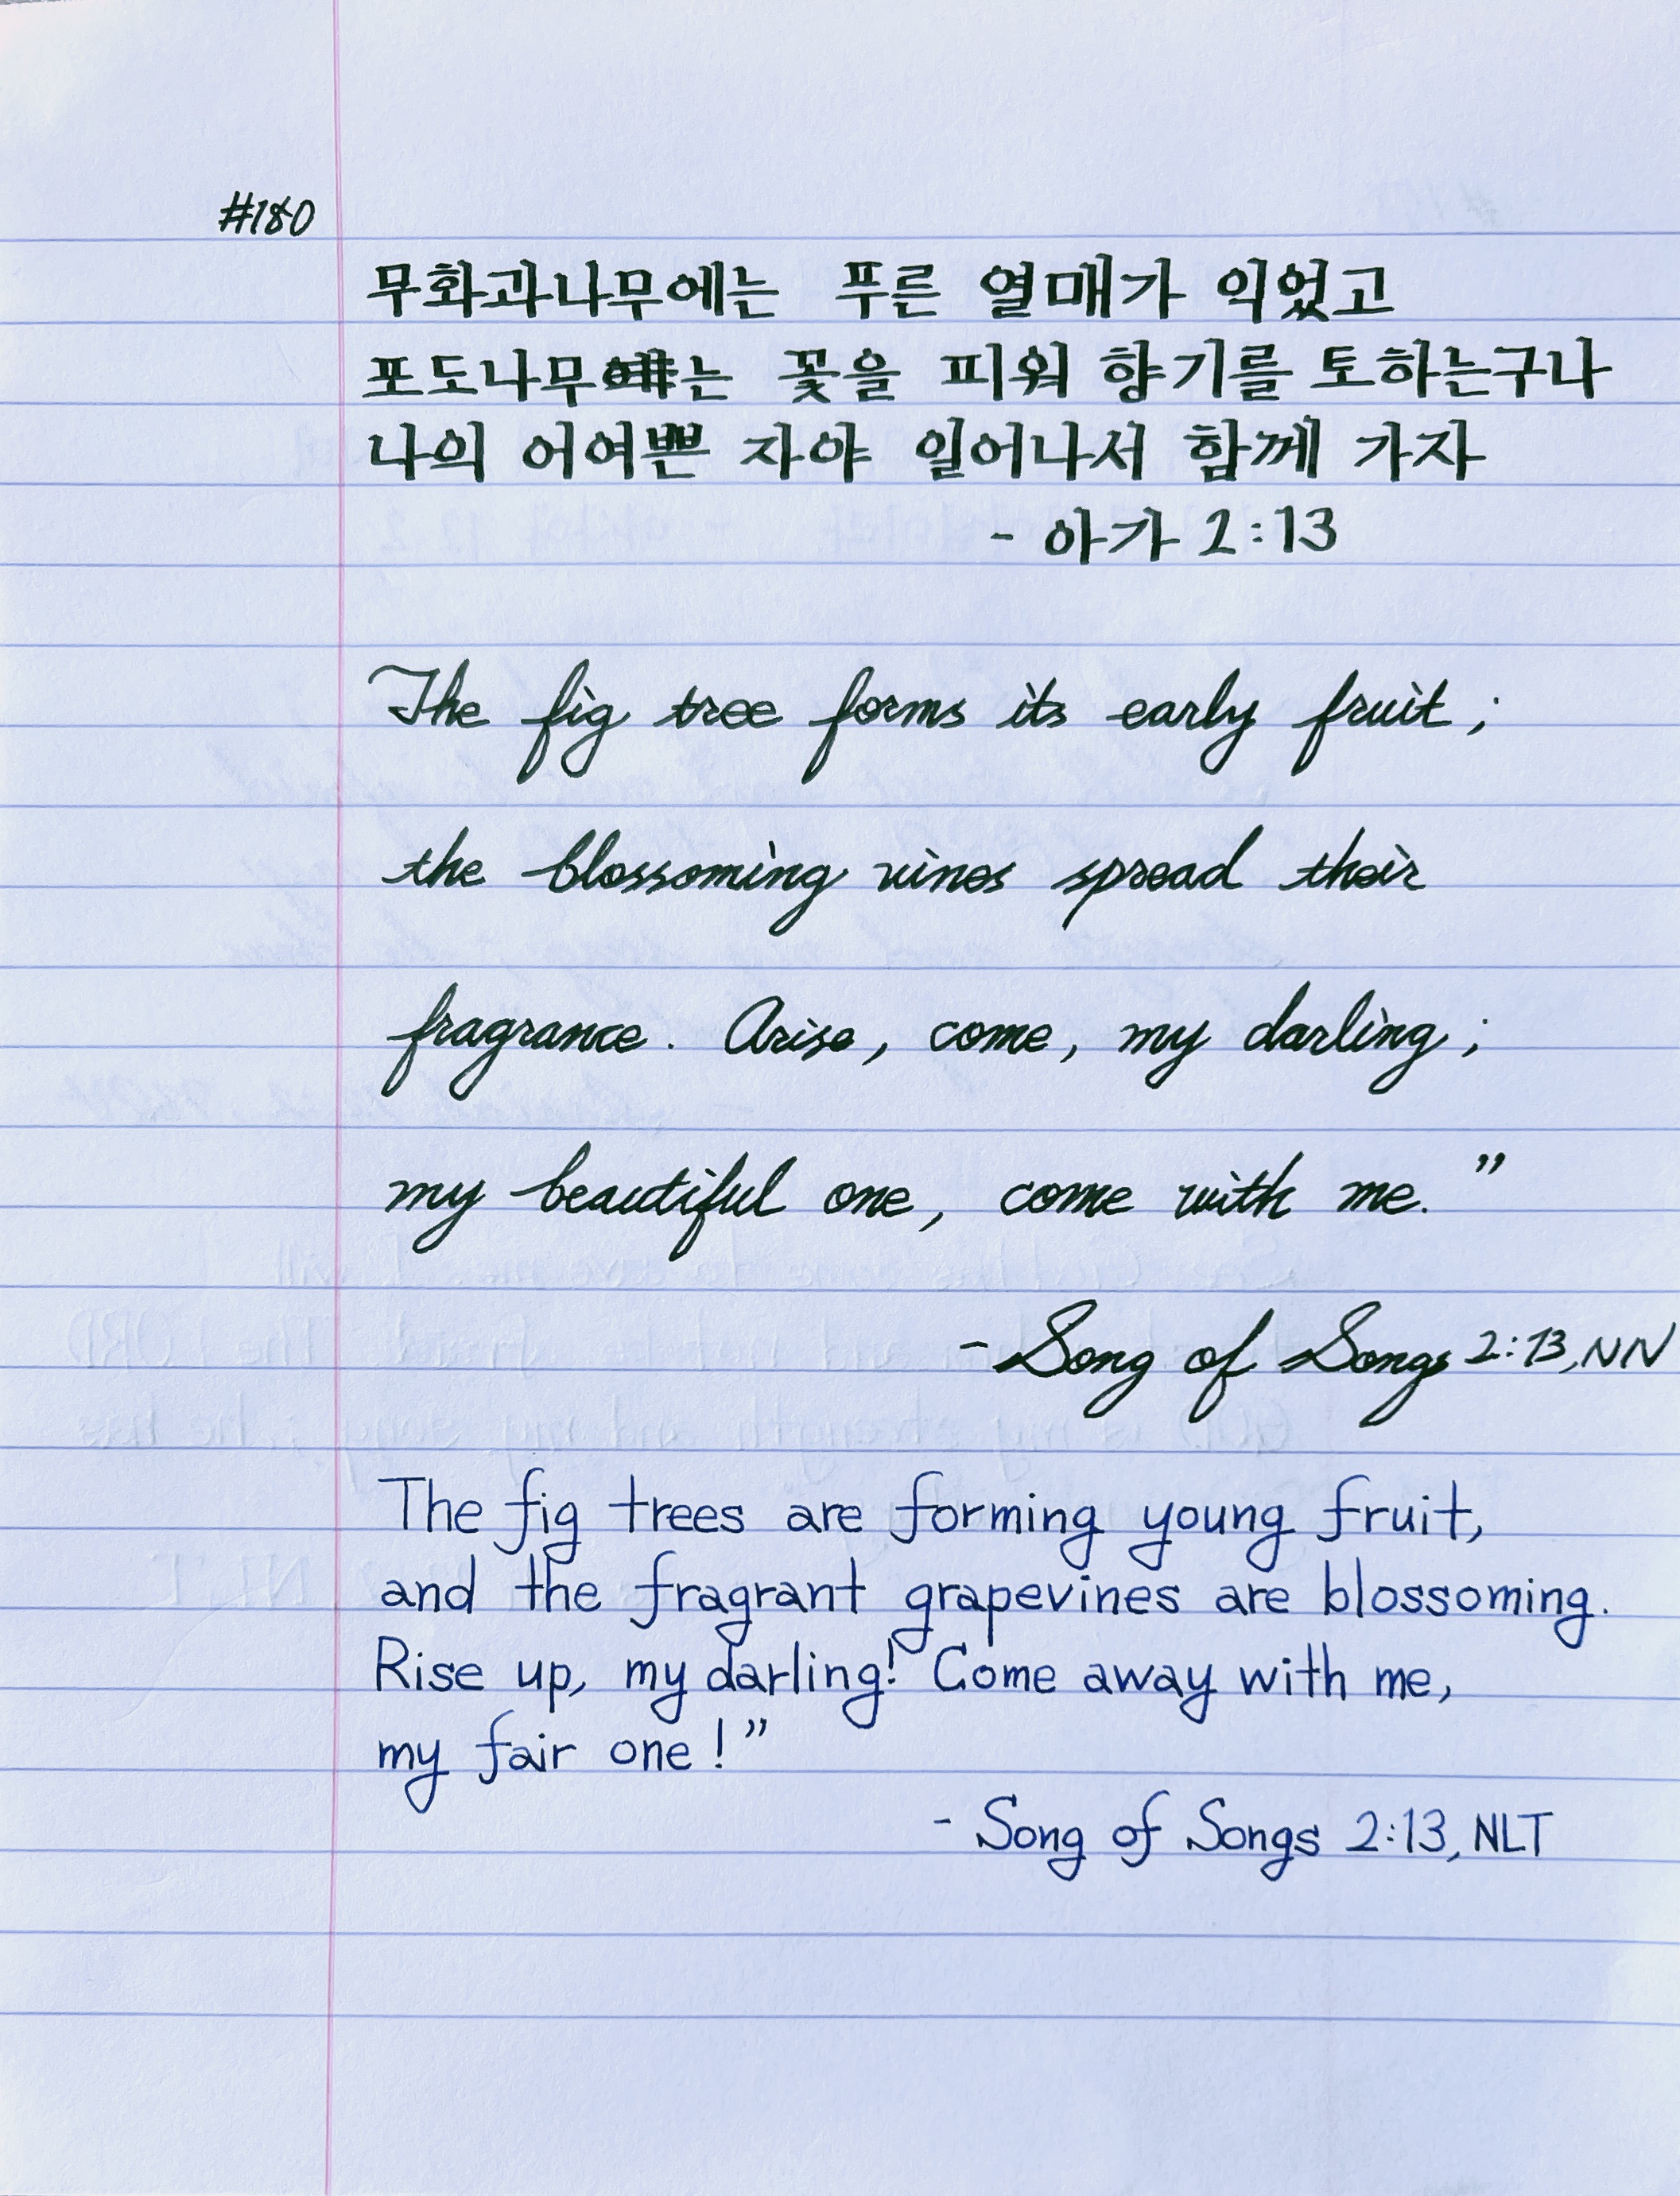 #180
무화과나무에는 푸른 열매가 익었고
포도나무는 꽃을 피워 향기를 토하는구나
나의 어여쁜 자야 일어나서 함께 가자
- 아가 2:13
The fig tree forms its early fruit;
the blossoming vines spread their
fragrance. Arise, come, my darling;
my beautiful one, come with me.”
- Song of Songs 2:13,
The fig trees are forming young fruit,
and the fragrant grapevines are blossoming.
Rise up, my darling! Come away with me,
my fair one!”
- Song of Songs 2:13, NLT